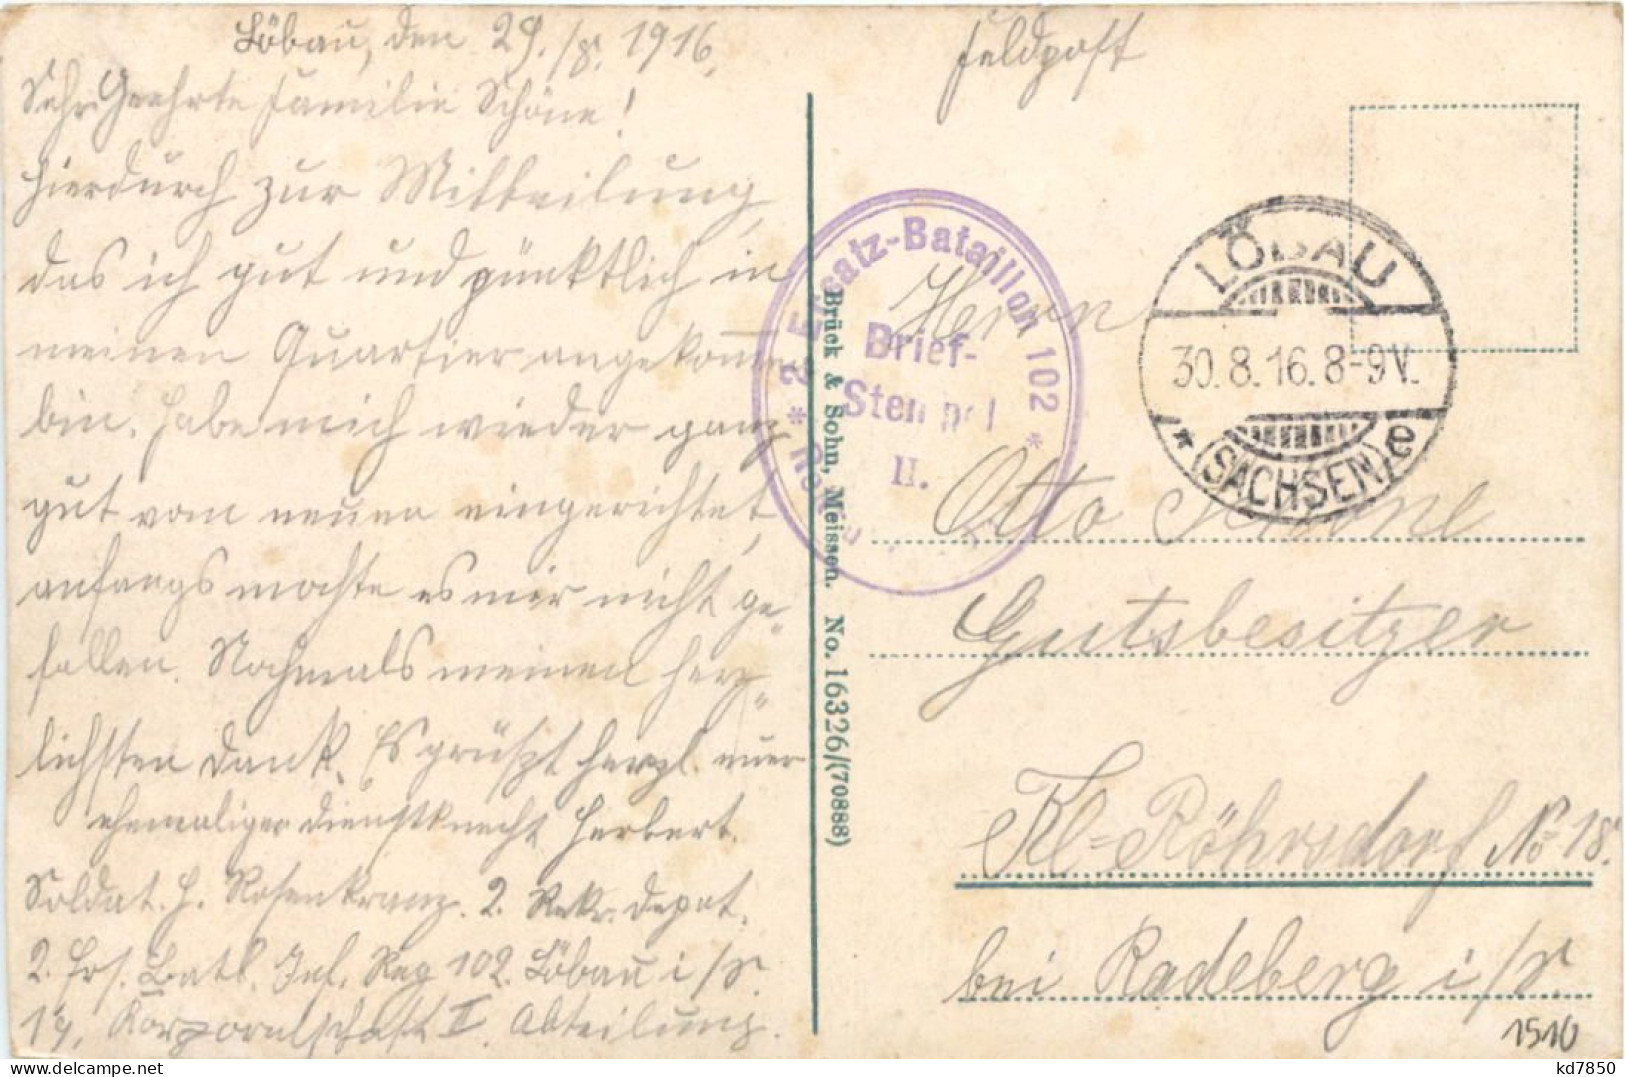 Löbau, den 29./8. 1916.
Sehr Geehrte Familie Schöne!
Hierdurch zur Mitteilung,
das ich gut und pünktlich in
meinen Quartier angekomm
bin. Habe mich wieder ganz
gut vom neuen eingerichtet,
anfangs mochte es mir nicht ge„
fallen. Nochmals meinen herz„
lichsten Dank. Es grüszt herzl. euer
ehemaliger Dienstknecht Herbert.
Soldat. H. Rosenkranz. 2. Rekr. Depot.
2. Ers. Batl. Inf. Reg 102. Löbau i/S.
19. Korporalschaft II. Abteilung.
Brück & Sohn, Meissen. No. 16326/(70888)
Feldpost
2. Ersatz-Bataillon 102 *
Brief-
Stempel
II.
LÖBAU
30.8.16.8-9V.
* (SACHSEN) e
Herrn
Otto Schöne
Gutsbesitzer
Kl=Röhrsdorf No 18.
bei Radeberg i/S.
1510
kd7850